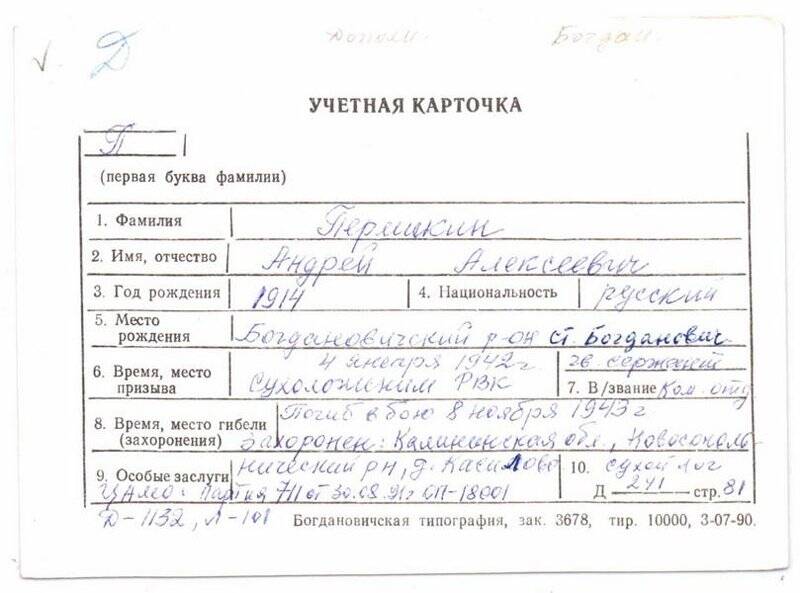 √ Д Дополн. Богдан.
УЧЕТНАЯ КАРТОЧКА
П
(первая буква фамилии)
1. Фамилия Перешкин
2. Имя, отчество Андрей Алексеевич
3. Год рождения 1914 4. Национальность русский
5. Место рождения Богдановичский р-он ст. Богданович
6. Время, место призыва 4 января 1942г Сухоложским РВК
гв. сержант
7. В/звание Ком. отд
8. Время, место гибели (захоронения) Погиб в бою 8 ноября 1943г
Захоронен: Калининская обл., Новосоколь-
9. Особые заслуги нический рн, д. Касилово
10. Сухой Лог
ЦАМО: Партия 711 от 30.08.91г ОП-18001
Д 241 стр. 81
Д-1132, Л-101
Богдановичская типография, зак. 3678, тир. 10000, 3-07-90.